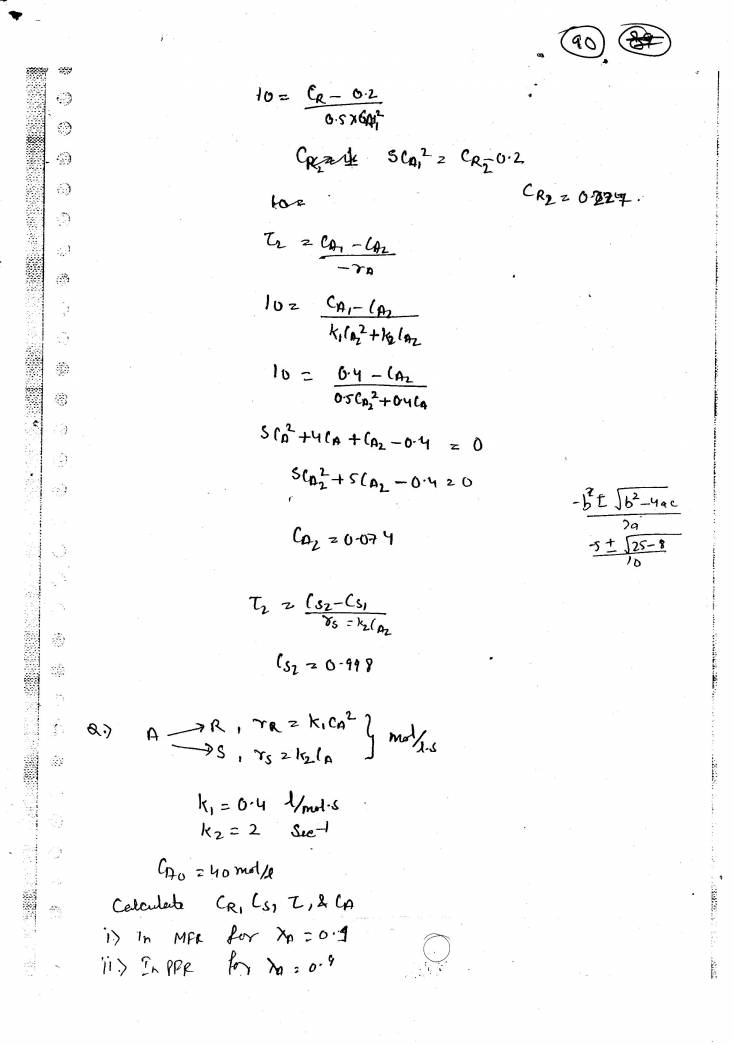 90
10 = C_R - 0.2 / 0.5 × C_A1²
5C_A1² = C_R2 - 0.2
C_R2 = 0.227.
τ2 = C_A1 - C_A2 / -r_A
10 = C_A1 - C_A2 / k1C_A2² + k2C_A2
10 = 0.4 - C_A2 / 0.5C_A2² + 0.4C_A
5C_A² + 4C_A + C_A2 - 0.4 = 0
5C_A2² + 5C_A2 - 0.4 = 0
-b ± √b² - 4ac / 2a
C_A2 = 0.074
-5 ± √25 - 8 / 10
τ2 = C_S2 - C_S1 / r_S = k2C_A2
C_S2 = 0.998
Q.) A → R, r_R = k1C_A² } mol/l.s
→ S, r_S = k2C_A
k1 = 0.4 l/mol.s
k2 = 2 Sec-1
C_A0 = 40 mol/l
Calculate C_R, C_S, τ, & C_A
i) In MFR for X_A = 0.9
ii) In PFR for X_A = 0.9